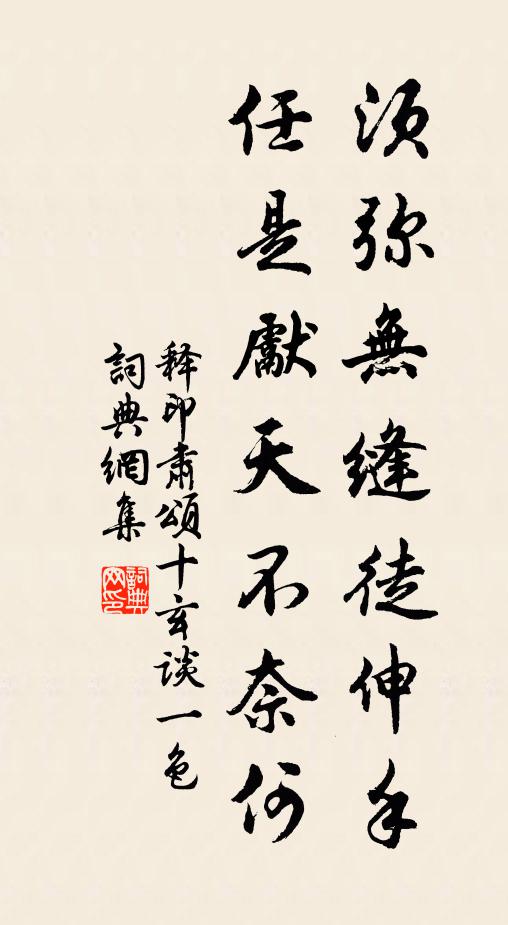 須弥無縫徒伸手
任是獻天不奈何
释印肅頌十玄談一色
詞典網集
詞典网印